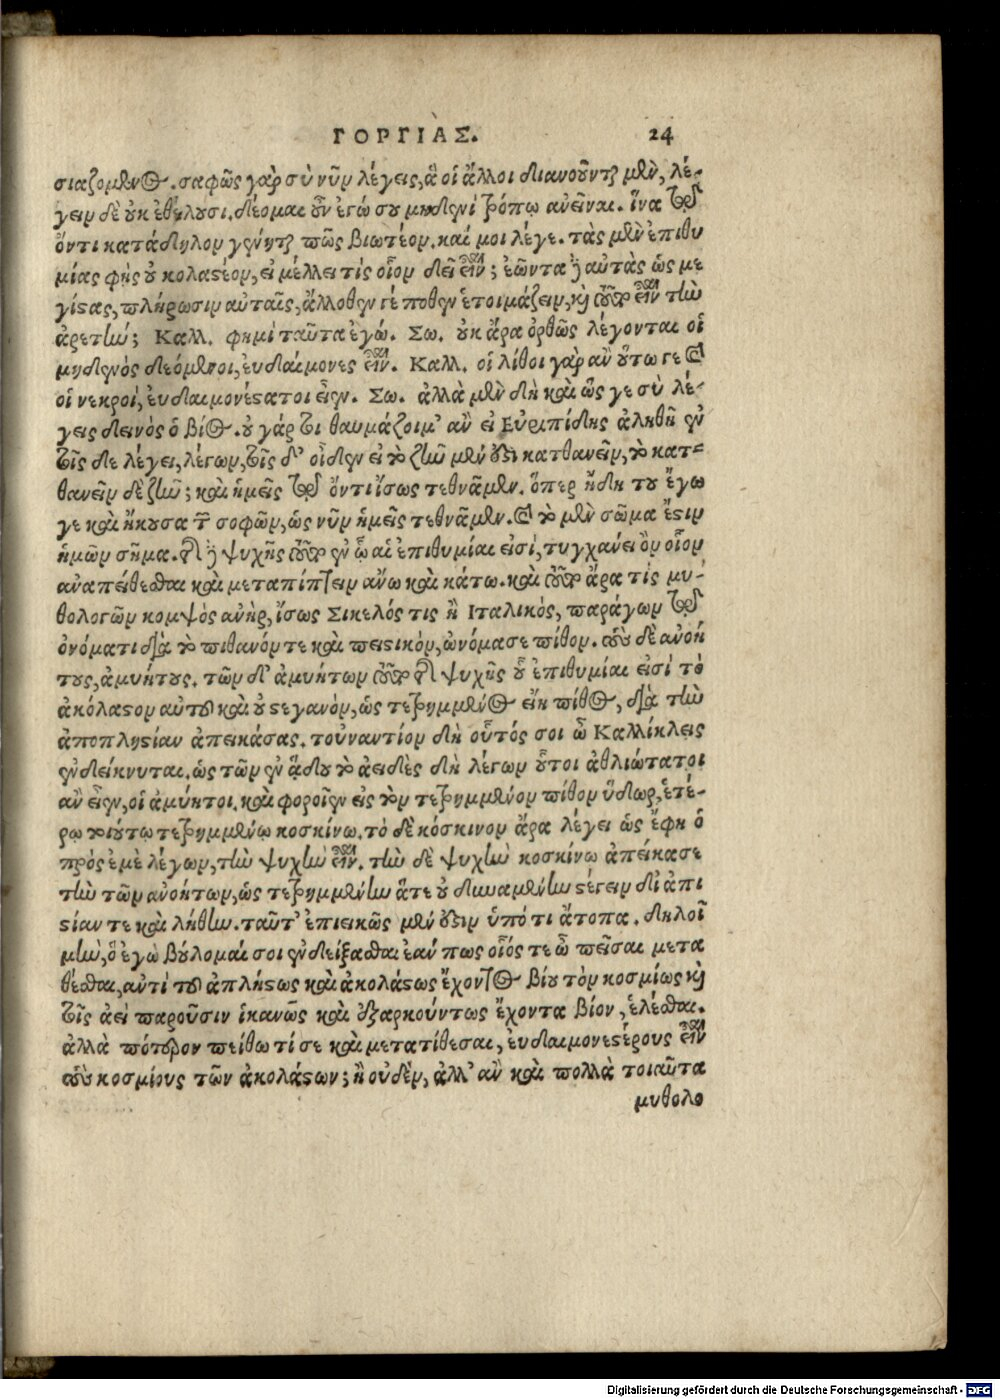 ΓΟΡΓΙΑΣ. 24
σιαζομενος. σαφῶς γὰρ σὺ νῦν λέγεις, ἃ οἱ ἄλλοι διανοοῦνται μὲν, λέ-
γειν δὲ οὐκ ἐθέλουσι. δέομαι οὖν ἐγώ σου μηδενὶ τρόπῳ ἀνεῖναι. ἵνα τῷ
ὄντι κατάδηλον γένηται πῶς βιωτέον. καί μοι λέγε. τὰς μὲν ἐπιθυ
μίας φῂς οὐ κολαστέον, εἰ μέλλει τὶς οἷον δεῖ εἶναι; ἐῶντα δὲ αὐτὰς ὡς με
γίστας, πλήρωσιν αὐταῖς, ἄλλοθεν γέ ποθεν ἑτοιμάζειν, καὶ τοῦτο εἶναι τὴν
ἀρετήν; Καλλ. φημὶ ταῦτα ἐγώ. Σω. οὐκ ἄρα ὀρθῶς λέγονται οἱ
μηδενὸς δεόμενοι, εὐδαίμονες εἶναι. Καλλ. οἱ λίθοι γὰρ ἂν οὕτω γε καὶ
οἱ νεκροί, εὐδαιμονέστατοι εἶεν. Σω. ἀλλὰ μὲν δὴ καὶ ὥς γε σὺ λέ-
γεις δεινὸς ὁ βίος. οὐ γάρ τοι θαυμάζοιμ' ἂν εἰ Εὐριπίδης ἀληθῆ ἐν
τοῖς δε λέγει, λέγων, τίς δ' οἶδεν εἰ τὸ ζῆν μέν ἐστι κατθανεῖν, τὸ κατ-
θανεῖν δὲ ζῆν; καὶ ἡμεῖς τῷ ὄντι ἴσως τεθνᾶμεν. ὅπερ ἤδη του ἔγω
γε καὶ ἤκουσα τῶν σοφῶν, ὡς νῦν ἡμεῖς τεθνᾶμεν. καὶ τὸ μὲν σῶμα ἔστιν
ἡμῶν σῆμα. τῆς δὲ ψυχῆς τοῦτο ἐν ᾧ αἱ ἐπιθυμίαι εἰσί, τυγχάνει ὂν οἷον
ἀναπείθεσθαι καὶ μεταπίπτειν ἄνω καὶ κάτω. καὶ τοῦτο ἄρα τὶς μυ-
θολογῶν κομψὸς ἀνὴρ, ἴσως Σικελός τις ἢ Ιταλικὸς, παράγων τῷ
ὀνόματι διὰ τὸ πιθανόν τε καὶ πειστικὸν, ὠνόμασε πίθον. τοὺς δὲ ἀνοή
τους, ἀμυήτους. τῶν δ' ἀμυήτων τοῦτο τῆς ψυχῆς οὗ ἐπιθυμίαι εἰσί τὸ
ἀκόλαστον αὐτοῦ καὶ οὐ στεγανὸν, ὡς τετρημμένος εἴη πίθος, διὰ τὴν
ἀποπληστίαν ἀπεικάσας. τοὐναντίον δὴ οὗτός σοι ὦ Καλλίκλεις
ἐνδείκνυται. ὡς τῶν ἐν ᾅδου τὸ ἀειδὲς δὴ λέγων οὗτοι ἀθλιώτατοι
ἂν εἶεν, οἱ ἀμύητοι. καὶ φοροῖεν εἰς τὸν τετρημμένον πίθον ὕδωρ, ἑτέ-
ρῳ τοιούτῳ τετρημμένῳ κοσκίνῳ. τὸ δὲ κόσκινον ἄρα λέγει ὡς ἔφη ὁ
πρὸς ἐμὲ λέγων, τὴν ψυχὴν εἶναι. τὴν δὲ ψυχὴν κοσκίνῳ ἀπείκασε
τὴν τῶν ἀνοήτων, ὡς τετρημμένην ἅτε οὐ δυναμένην στέγειν δι' ἀπι
στίαν τε καὶ λήθην. ταῦτ' ἐπιεικῶς μέν ἐστιν ὑπό τι ἄτοπα. δηλοῖ
μὴν, ὃ ἐγὼ βούλομαί σοι ἐνδείξασθαι ἐάν πως οἷός τε ὦ πεῖσαι μετα
θέσθαι, ἀντὶ τοῦ ἀπλήστως καὶ ἀκολάστως ἔχοντος βίου τὸν κοσμίως καὶ
τοῖς ἀεὶ παροῦσιν ἱκανῶς καὶ ἐξαρκούντως ἔχοντα βίον, ἑλέσθαι.
ἀλλὰ πότερον πείθω τί σε καὶ μετατίθεσαι, εὐδαιμονεστέρους εἶναι
τοὺς κοσμίους τῶν ἀκολάστων; ἢ οὐδὲν, ἀλλ' ἂν καὶ πολλὰ τοιαῦτα
μυθολο
Digitalisierung gefördert durch die Deutsche Forschungsgemeinschaft - DFG